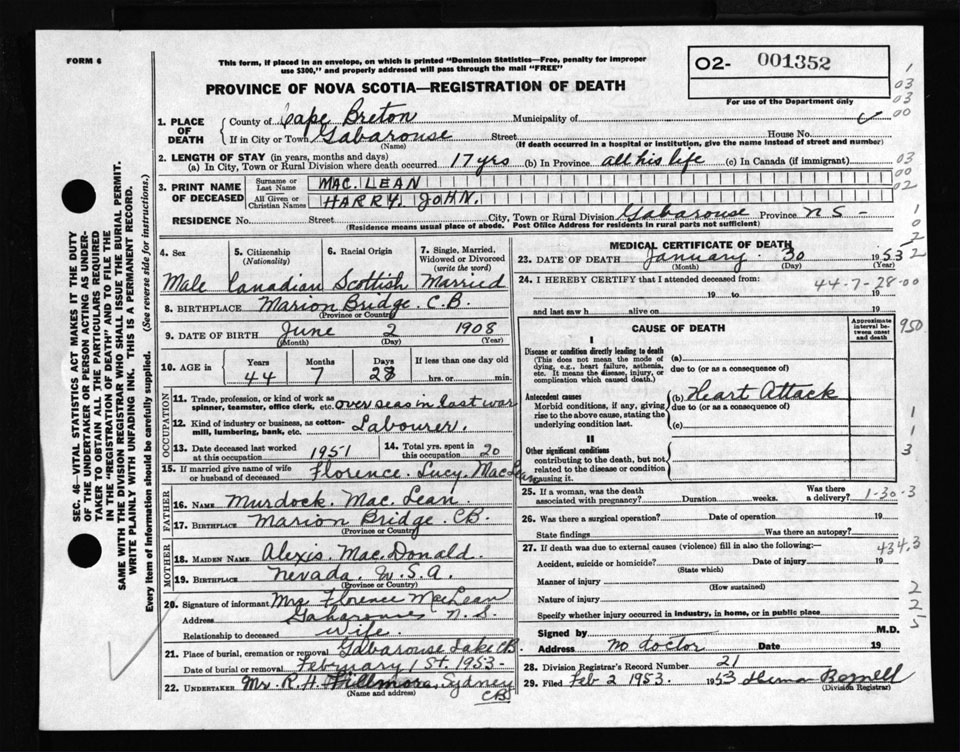 FORM 6
This form, if placed in an envelope, on which is printed "Dominion Statistics—Free, penalty for improper
use $300," and properly addressed will pass through the mail "FREE"
PROVINCE OF NOVA SCOTIA—REGISTRATION OF DEATH
O2- 001352
For use of the Department only
1. PLACE OF DEATH
County of Cape Breton Municipality of
If in City or Town Gabarouse Street House No.
(Name) (If death occurred in a hospital or institution, give the name instead of street and number)
2. LENGTH OF STAY (in years, months and days)
(a) In City, Town or Rural Division where death occurred 17 yrs (b) In Province all his life (c) In Canada (if immigrant)
3. PRINT NAME OF DECEASED
Surname or Last Name MAC. LEAN
All Given or Christian Names HARRY. JOHN.
RESIDENCE No. Street City, Town or Rural Division Gabarouse Province N S -
(Residence means usual place of abode. Post Office Address for residents in rural parts not sufficient)
4. Sex 5. Citizenship (Nationality) 6. Racial Origin 7. Single, Married, Widowed or Divorced (write the word)
Male Canadian Scottish Married
8. BIRTHPLACE Marion Bridge. C.B.
(Province or Country)
9. DATE OF BIRTH June 2 1908
(Month) (Day) (Year)
10. AGE in Years Months Days If less than one day old
44 7 28 hrs. or min.
OCCUPATION
11. Trade, profession, or kind of work as
spinner, teamster, office clerk, etc. over seas in last war
12. Kind of industry or business, as cotton-
mill, lumbering, bank, etc. Labourer.
13. Date deceased last worked at this occupation 1951
14. Total yrs. spent in this occupation 20
15. If married give name of wife
or husband of deceased Florence. Lucy. MacLean
FATHER
16. NAME Murdock. Mac. Lean.
17. BIRTHPLACE Marion Bridge. CB.
(Province or Country)
MOTHER
18. MAIDEN NAME Alexis. MacDonald.
19. BIRTHPLACE Nevada. U.S.A.
(Province or Country)
20. Signature of informant Mrs Florence MacLean
Address Gabarouse N. S.
Relationship to deceased Wife.
21. Place of burial, cremation or removal Gabarouse Lake CB
Date of burial or removal February 1 St. 1953-
22. UNDERTAKER Mr. R. H. Fillmore, Sydney
(Name and address) CB.
MEDICAL CERTIFICATE OF DEATH
23. DATE OF DEATH January. 30 1953
(Month) (Day) (Year)
24. I HEREBY CERTIFY that I attended deceased from:
44-7-28-00
19 to 19
and last saw h alive on 19
CAUSE OF DEATH
Approximate interval between onset and death
I
Disease or condition directly leading to death (a)
(This does not mean the mode of
dying, e.g., heart failure, asthenia,
etc. It means the disease, injury, or
complication which caused death.)
due to (or as a consequence of)
Antecedent causes (b) Heart Attack
Morbid conditions, if any, giving
rise to the above cause, stating the
underlying condition last.
due to (or as a consequence of)
(c)
II
Other significant conditions
contributing to the death, but not
related to the disease or condition
causing it.
25. If a woman, was the death
associated with pregnancy? Duration weeks. Was there a delivery?
1-30-3
26. Was there a surgical operation? Date of operation 19
State findings Was there an autopsy?
27. If death was due to external causes (violence) fill in also the following:—
434.3
Accident, suicide or homicide? Date of injury 19
(State which)
Manner of injury
(How sustained)
Nature of injury
Specify whether injury occurred in industry, in home, or in public place
Signed by M.D.
Address no doctor Date 19
28. Division Registrar's Record Number 21
29. Filed Feb 2 1953. 1953
(Division Registrar)
1
03
03
00
03
00
02
1
0
2
2
950
1
1
3
2
2
5
SEC. 46—VITAL STATISTICS ACT MAKES IT THE DUTY
OF THE UNDERTAKER OR PERSON ACTING AS UNDER-
TAKER TO OBTAIN ALL THE PARTICULARS REQUIRED
IN THE "REGISTRATION OF DEATH" AND TO FILE THE
SAME WITH THE DIVISION REGISTRAR WHO SHALL ISSUE THE BURIAL PERMIT.
WRITE PLAINLY WITH UNFADING INK. THIS IS A PERMANENT RECORD.
Every Item of Information should be carefully supplied. (See reverse side for instructions.)